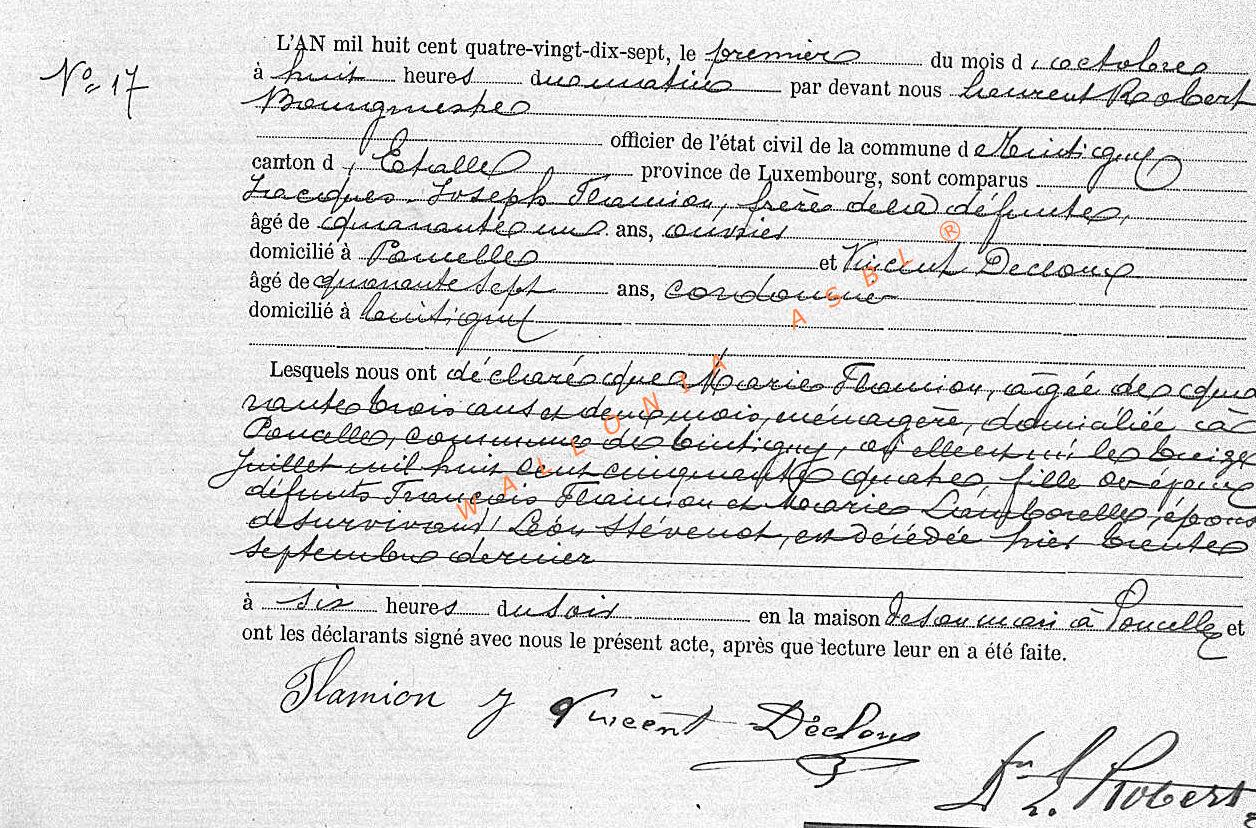 N° 17
L'AN mil huit cent quatre-vingt-dix-sept, le premier du mois d'octobre
à huit heures du matin par devant nous Laurent Robert
Bourgmestre
officier de l'état civil de la commune de Tintigny
canton d'Etalle province de Luxembourg, sont comparus
Jacques Joseph Flamion, frère de la défunte,
âgé de quarante un ans, ouvrier
domicilié à Poncelle et Vincent Decloux
âgé de quarante sept ans, cordonnier
domicilié à Tintigny
Lesquels nous ont déclaré que Marie Flamion, âgée de qua
rante trois ans et deux mois, ménagère, domiciliée à
Poncelle, commune de Tintigny, où elle est née le treize
Juillet mil huit cent cinquante quatre, fille des époux
défunts François Flamion et Marie, épouse
de survivant Léon Stévenot, est décédée hier trente
septembre dernier
à six heures du soir en la maison de son mari à Poncelle et
ont les déclarants signé avec nous le présent acte, après que lecture leur en a été faite.
Flamion J Vincent Décloux
L. Robert
WALLONIA ASBL ®